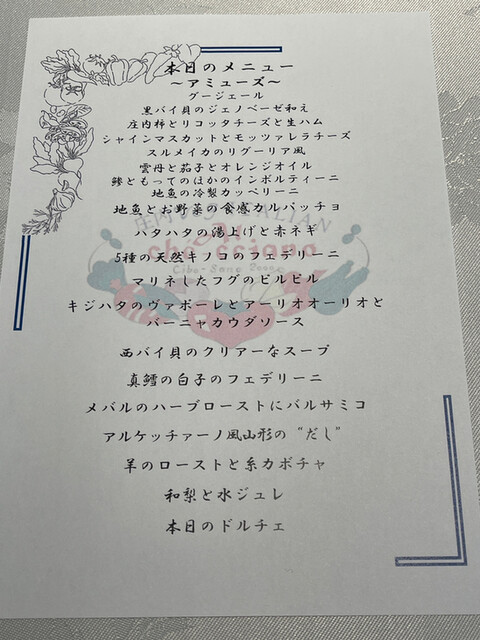 本日のメニュー
～アミューズ～
グージェール
黒バイ貝のジェノベーゼ和え
庄内柿とリコッタチーズと生ハム
シャインマスカットとモッツァレラチーズ
スルメイカのリグーリア風
雲丹と茄子とオレンジオイル
鯵ともってのほかのインボルティーニ
地魚の冷製カッペリーニ
地魚とお野菜の食感カルパッチョ
ハタハタの湯上げと赤ネギ
5種の天然キノコのフェデリーニ
マリネしたフグのピルピル
キジハタのヴァポーレとアーリオオーリオと
バーニャカウダソース
西バイ貝のクリアーなスープ
真鱈の白子のフェデリーニ
メバルのハーブローストにバルサミコ
アルケッチァーノ風山形の“だし”
羊のローストと糸カボチャ
和梨と水ジュレ
本日のドルチェ